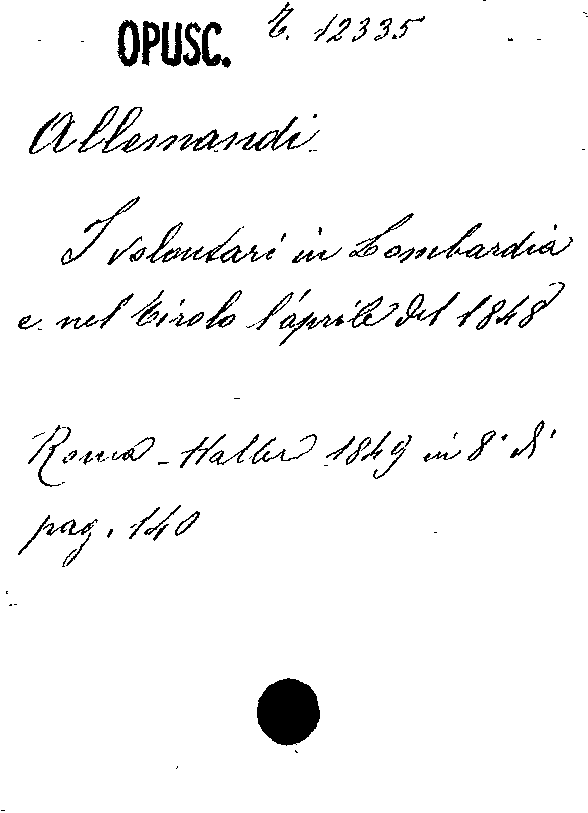 OPUSC. T. 12335
Allemandi
I volontari in Lombardia
e nel Tirolo l'aprile del 1848
Roma - Haller 1849 in 8° di
pag. 140